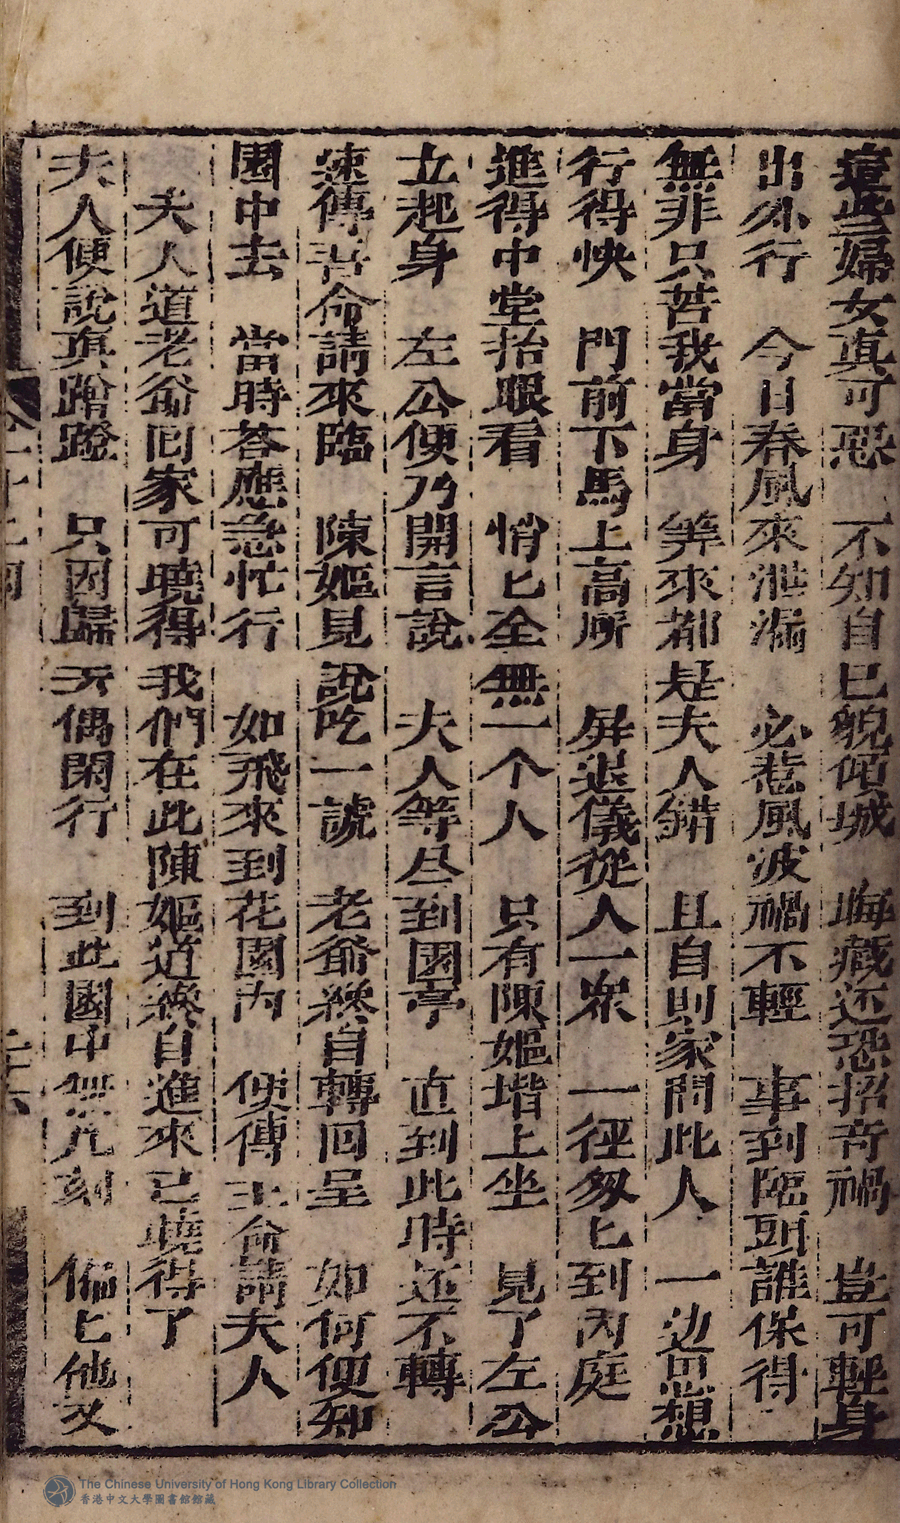 這些婦女真可惡 不知自已貌傾城 晦藏还恐招奇禍 豈可輕身
出外行 今日春風來泄漏 必惹風波禍不輕 事到臨頭誰保得
無非只苦我當身 筭來都是夫人錯 且自到家問此人 一边思想
行得快 門前下馬上高所 屏退儀從人一衆 一徑匆匕到內庭
進得中堂抬眼看 悄匕全無一个人 只有陳嫗堦上坐 見了左公
立起身 左公便乃開言說 夫人等尽到園亭 直到此時还不轉
速傳吾命請來臨 陳嫗見說吃一諕 老爺緣自轉回呈 如何便知
園中去 當時荅應急忙行 如飛來到花園內 便傳主命請夫人
夫人道老爺囘家可曉得我們在此陳嫗道緣自進來已曉得了
夫人便說真蹭蹬 只因歸天偶閑行 到此園中無几刻 偏匕他又
The Chinese University of Hong Kong Library Collection
香港中文大學圖書館館藏